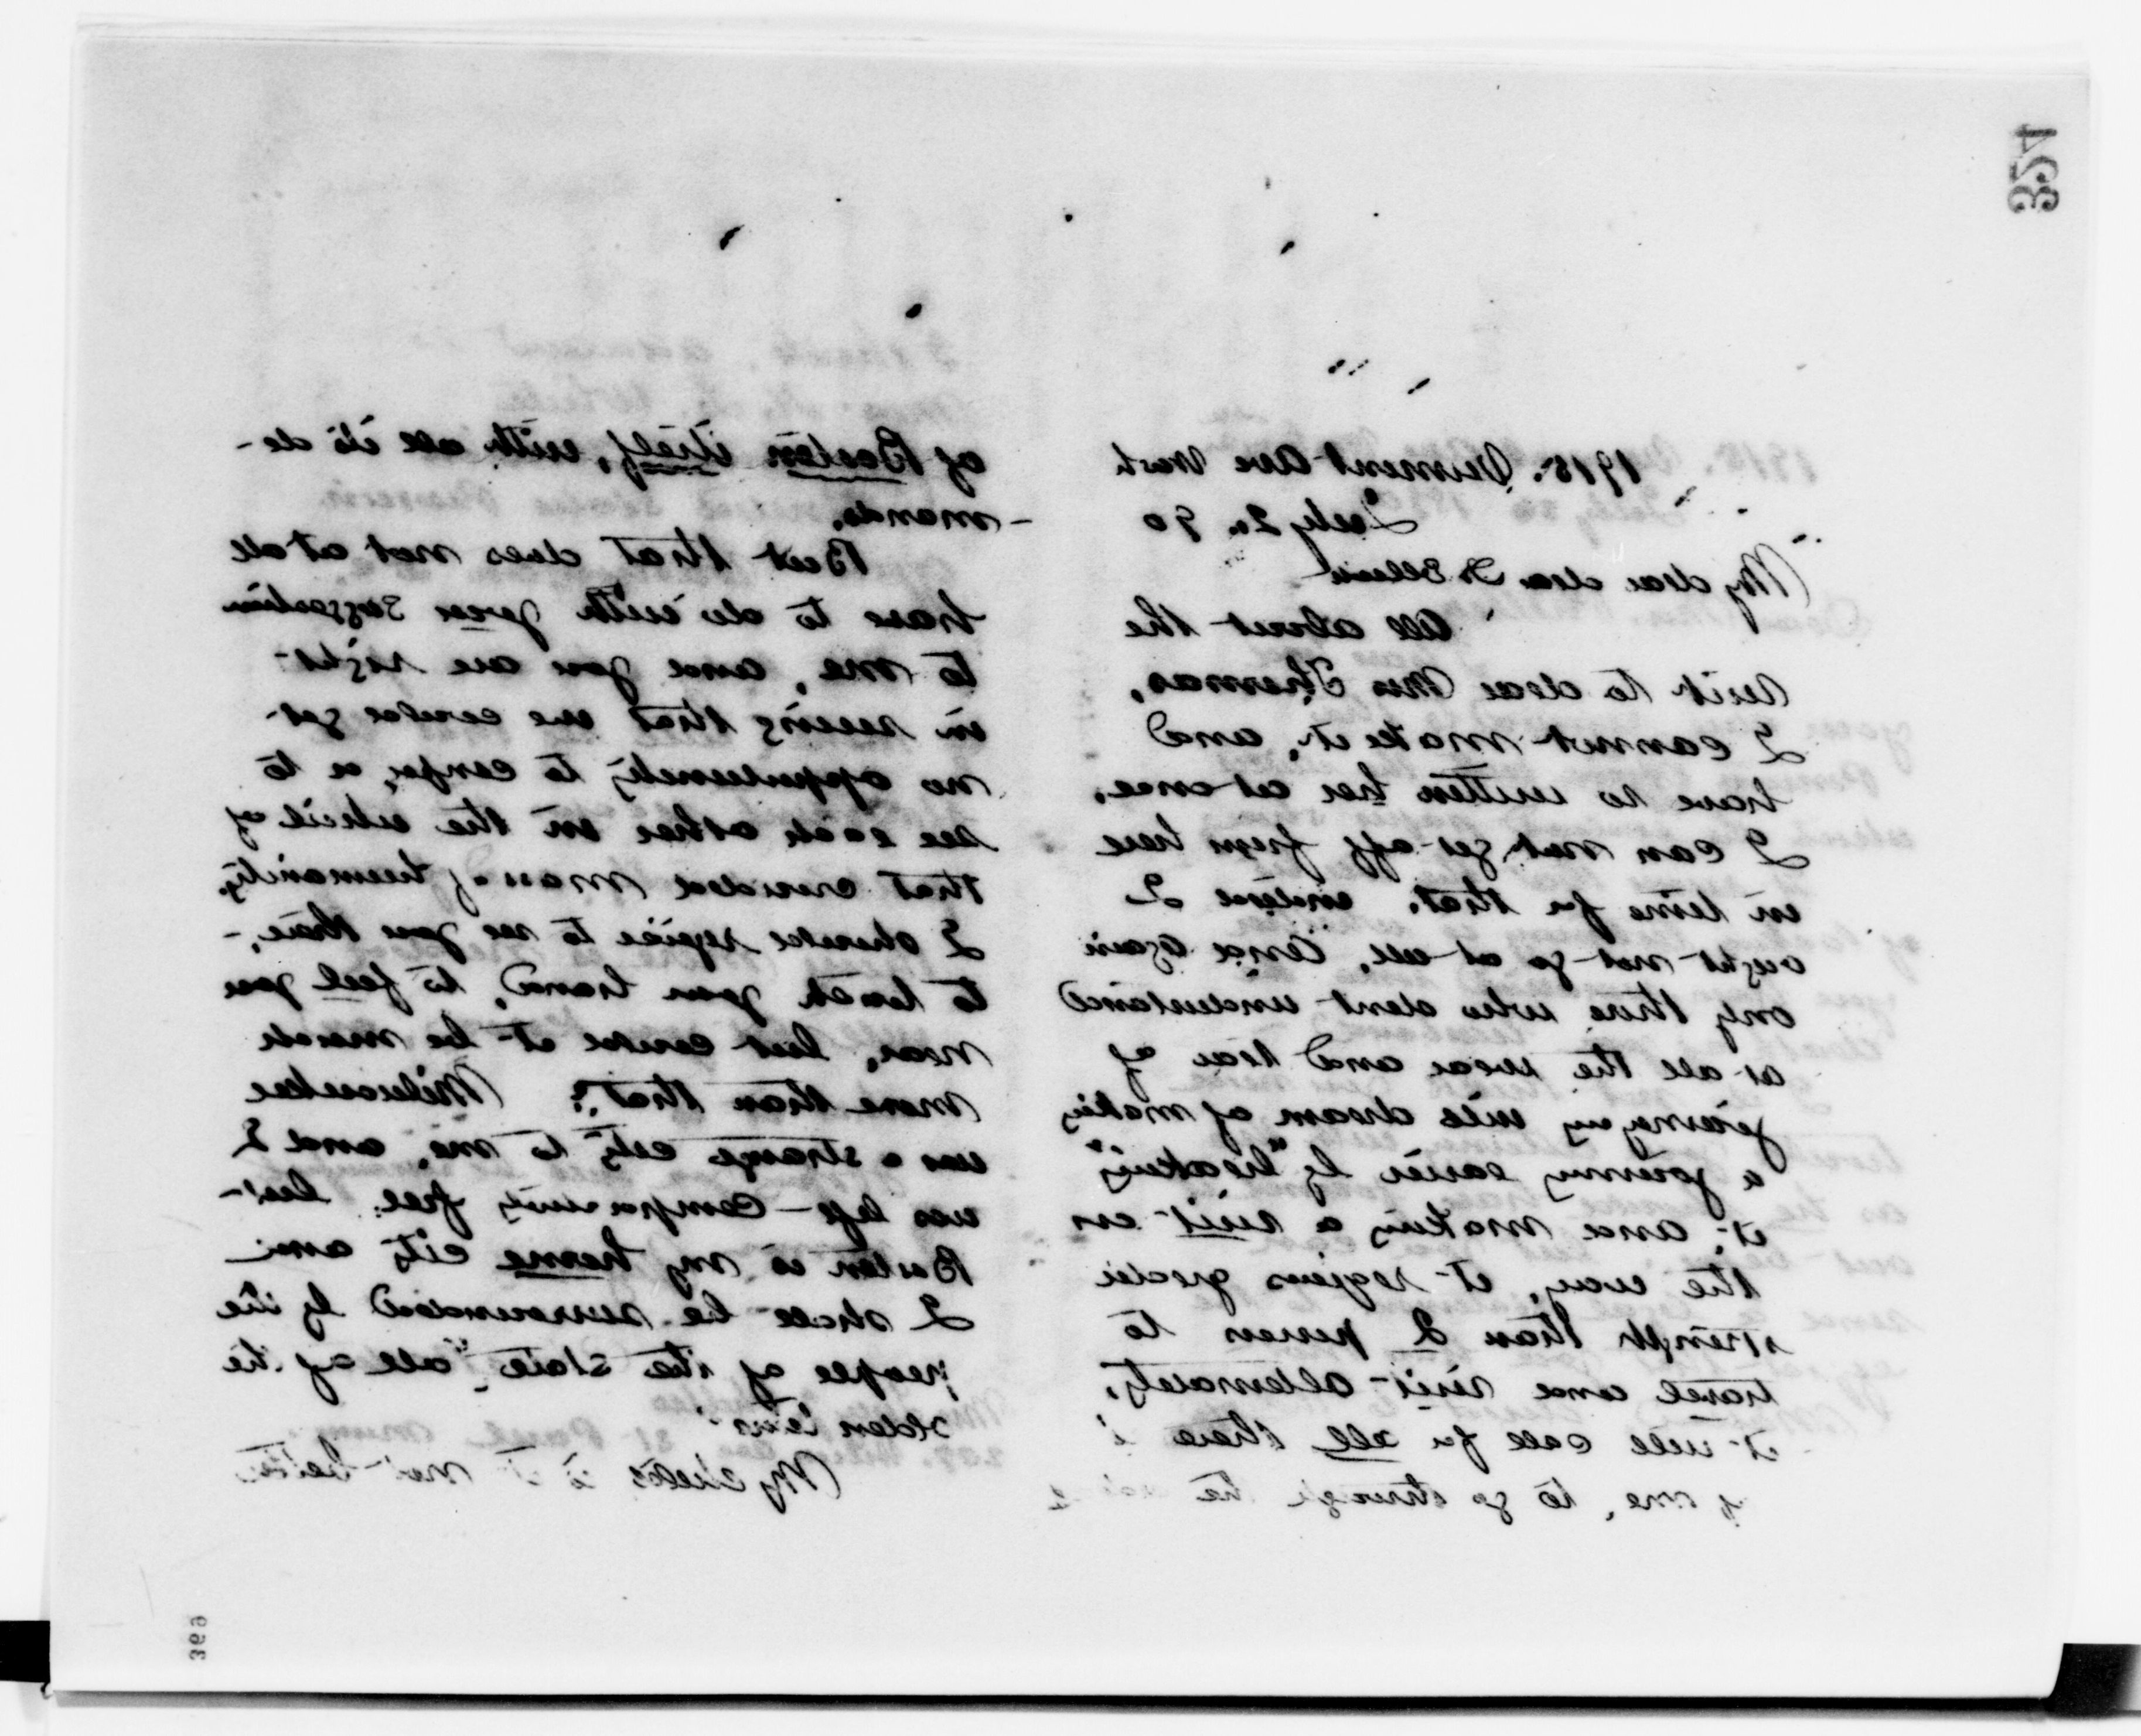 324
1915. Vermont Ave Wash
July 2. 90
My dear dear
All about the
visit to dear Mrs Thomas,
I cannot make it, and
have so written her at once.
I can not get off from here
in time for that. indeed I
ought not go at all. And again
only those who dont understand
at all the wear and tear of
journeying will dream of making
a journey easier by "breaking"
it; and making a visit on
the way, it requires greater
strength than I possess to
travel and visit alternately,
it will call for all there is
of me, to go through the
of Boston itself, with all its de-
-mands.
But that does not at all
have to do with your suggestion
to me, and you are right
in seeing that we could get
no opportunity to confer, or to
see each other in the whirl of
that crowded mass of humanity.
I should rejoice to see you there,-
to touch your hand, to feel you
near, but could it be much
more than that? Milwaukee
was a strange city to me, and I
was left - comparatively free. but
Boston is my home city and
I shall be surrounded by the
people of the state, "all of the
olden time"
My is it not better
369